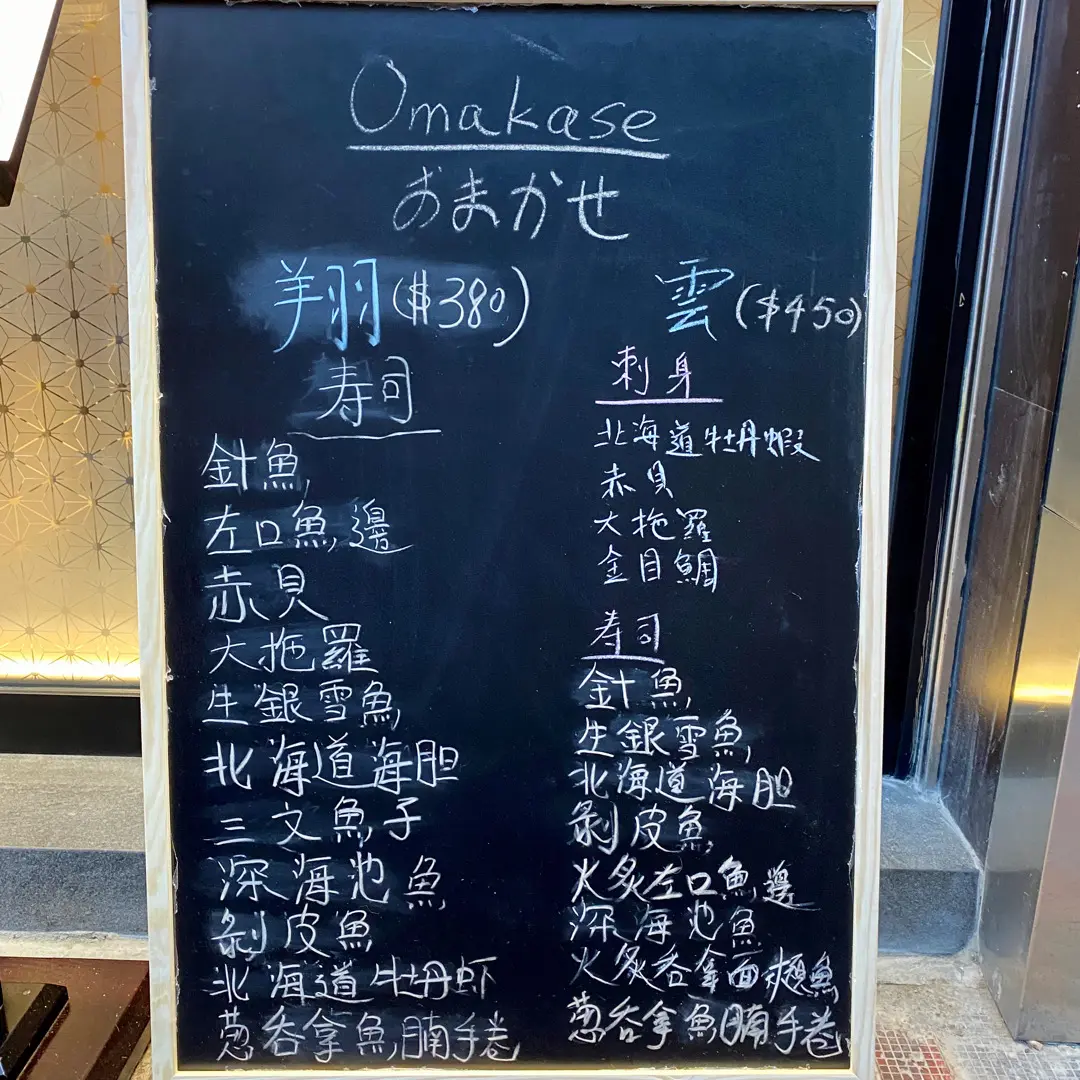 Omakase
おまかせ
翔($380)
寿司
針魚
左口魚邊
赤貝
大拖羅
生銀雪魚
北海道海胆
三文魚子
深海池魚
剝皮魚
北海道牡丹虾
葱吞拿魚腩手卷
雲($450)
刺身
北海道牡丹蝦
赤貝
大拖羅
金目鯛
寿司
針魚
生銀雪魚
北海道海胆
剝皮魚
火炙左口魚邊
深海池魚
火炙吞拿面魚
葱吞拿魚腩手卷